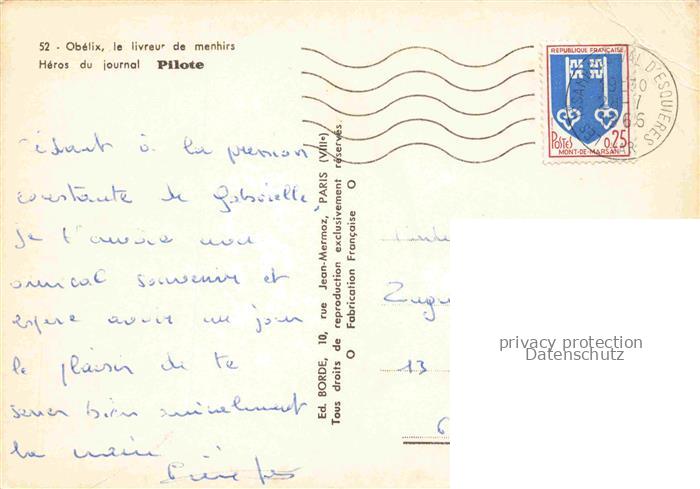 52 - Obélix, le livreur de menhirs
Héros du journal Pilote
REPUBLIQUE FRANÇAISE
POSTES 0,25
MONT-DE-MARSAN
VAL D'ESQUIERES
Cédant à la pression
constante de Gabrielle,
je t'envoie mon
amical souvenir et
espère avoir un jour
le plaisir de te
serrer bien amicalement
la main
Ed. BORDE, 10, rue Jean-Mermoz, PARIS (VIIIe)
Tous droits de reproduction exclusivement réservés.
O Fabrication Française O
13
6
privacy protection
Datenschutz